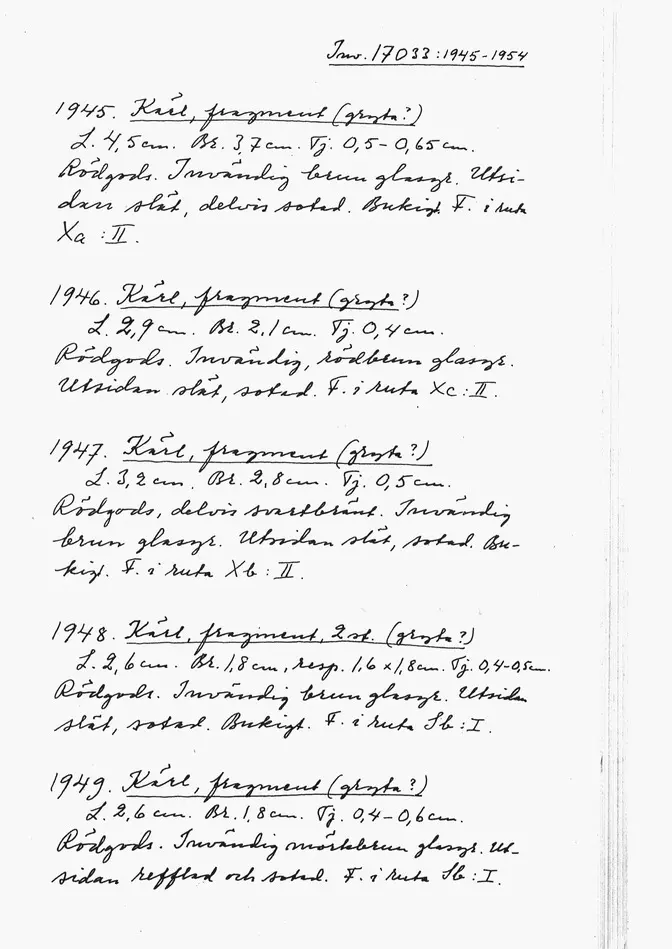 Inv. 17033:1945-1954
1945. Kärl, fragment (gryta?)
L. 4,5 cm. Br. 3,7 cm. Tj. 0,5-0,65 cm.
Rödgods. Invändig brun glasyr. Utsi-
dan slät, delvis sotad. Bukigt. F. i ruta
Xa : II.
1946. Kärl, fragment (gryta?)
L. 2,9 cm. Br. 2,1 cm. Tj. 0,4 cm.
Rödgods. Invändig, rödbrun glasyr.
Utsidan slät, sotad. F. i ruta Xc : II.
1947. Kärl, fragment (gryta?)
L. 3,2 cm. Br. 2,8 cm. Tj. 0,5 cm.
Rödgods, delvis svartbränt. Invändig
brun glasyr. Utsidan slät, sotad. Bu-
kigt. F. i ruta Xb : II.
1948. Kärl, fragment, 2 st. (gryta?)
L. 2,6 cm. Br. 1,8 cm, resp. 1,6 x 1,8 cm. Tj. 0,4-0,5 cm.
Rödgods. Invändig brun glasyr. Utsidan
slät, sotad. Bukigt. F. i ruta Sb : I.
1949. Kärl, fragment (gryta?)
L. 2,6 cm. Br. 1,8 cm. Tj. 0,4-0,6 cm.
Rödgods. Invändig mörkbrun glasyr. Ut-
sidan refflad och sotad. F. i ruta Sb : I.